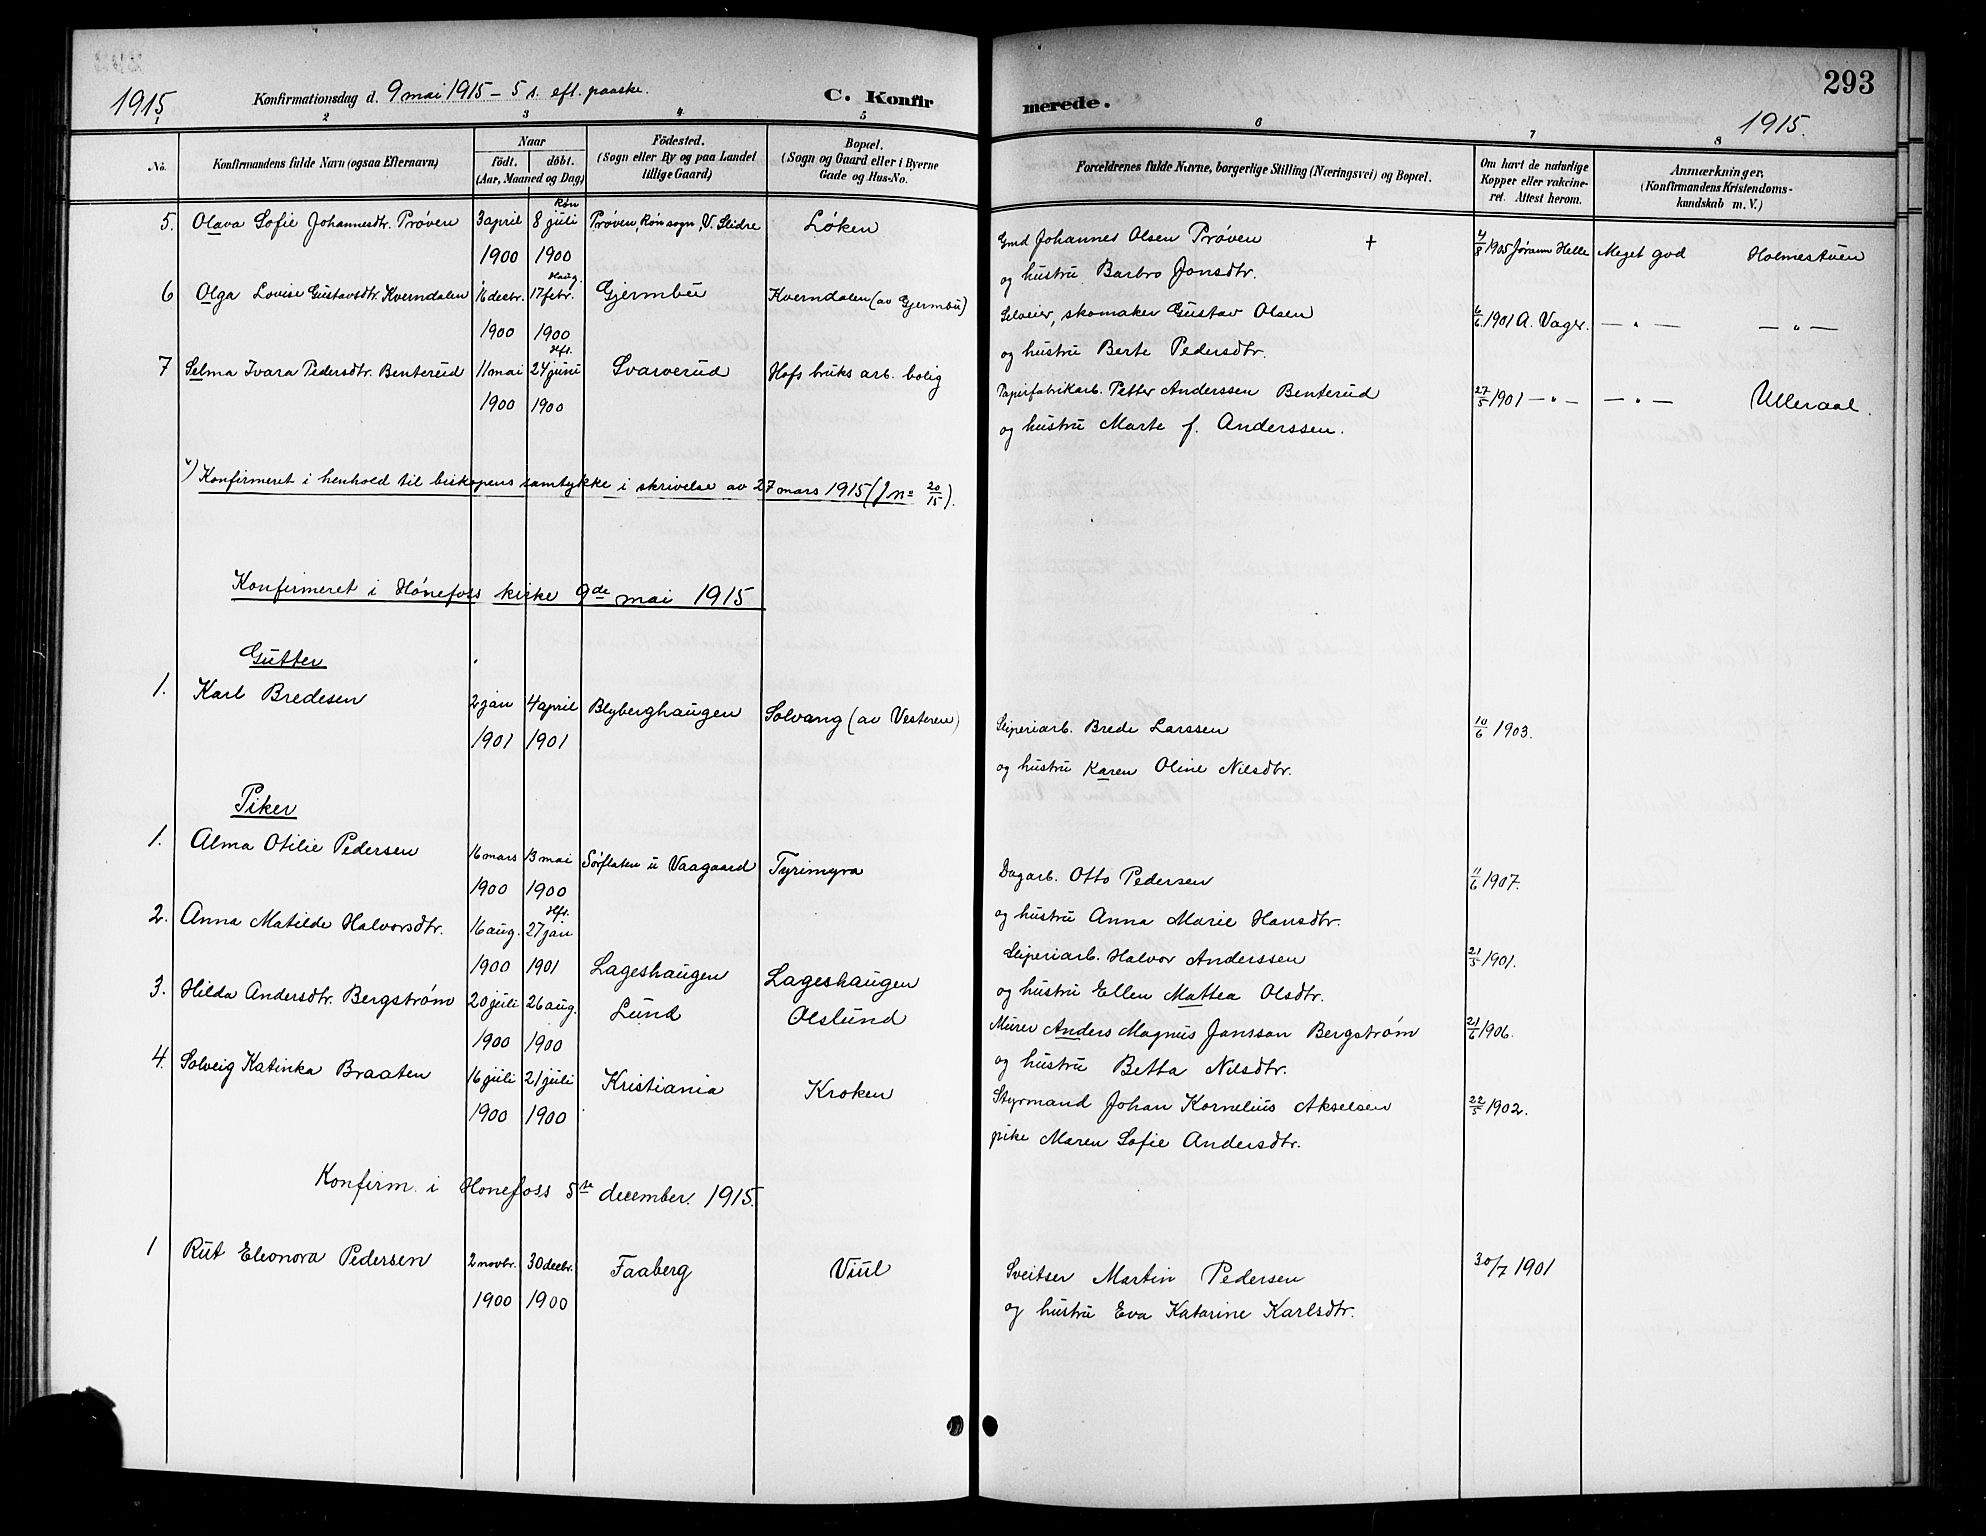 1915
Konfirmationsdag d. 9 mai 1915 – 5 s. eft. paaske.
C. Konfir
merede.
293
1915.
1 2 3 4 5 6 7 8
No.
Konfirmandens fulde Navn (ogsaa Efternavn)
Naar
födt. döbt.
(Aar, Maaned og Dag)
Födested.
(Sogn eller By og paa Landet
tillige Gaard)
Bopæl.
(Sogn og Gaard eller i Byerne
Gade og Hus-No.
Forældrenes fulde Navne, borgerlige Stilling (Næringsvei) og Bopæl.
Om havt de naturlige
Kopper eller vakcine-
ret. Attest herom.
Anmærkninger.
(Konfirmandens Kristendoms-
kundskab m. V.)
5. Olava Sofie Johannesdtr. Prøven 3 april 1900 Røn 8 juli 1900 Prøven, Røn sogn, V. Slidre Løken
Gmd Johannes Olsen Prøven + 4/8 1905 Jørann Helle Meget god Holmestuen
og hustru Barbro Jonsdtr.
6 Olga Lovise Gustavsdtr. Kverndalen 16 decbr. 1900 Haug 17 febr. 1900 Gjermbu Kverndalen (av Gjermbu)
Selveier, skomaker Gustav Olsen 6/6 1901 A. Vager. — „ — — „ —
og hustru Berte Pedersdtr.
7 Selma Ivara Pedersdtr. Benterud 11 mai 1900 Hfs. 24 juni 1900 Svarverud Hofs bruks arb. bolig
Papirfabrikarb. Petter Anderssen Benterud 27/5 1901 — „ — — „ — Ulleraal.
og hustru Marte f. Anderssen.
*) Konfirmeret i henhold til biskopens samtykke i skrivelse av 27 mars 1915 (J no 20/15).
Konfirmeret i Hønefoss kirke 9de mai 1915
Gutter
1. Karl Bredesen 2 jan 1901 4 april 1901 Blyberghaugen Solvang (av Vesteren)
Sliperiarb. Brede Larssen 10/6 1903.
og hustru Karen Oline Nilsdtr.
Piker
1. Alma Otilie Pedersen 16 mars 1900 13 mai 1900 Sørflaten u Vaagaard Tyrimyra
Dagarb. Otto Pedersen 11/6 1907.
og hustru Anna Marie Hansdtr.
2. Anna Matilde Halvorsdtr. 16 aug. 1900 Hfs. 27 jan 1901 Lageshaugen Lageshaugen
Sliperiarb. Halvor Anderssen 21/5 1901.
og hustru Ellen Mattea Olsdtr.
3. Hilda Andersdtr. Bergstrøm 20 juli 1900 26 aug. 1900 Lund Olslund
Murer Anders Magnus Jansson Bergstrøm 21/6 1906.
og hustru Betta Nilsdtr.
4. Solveig Katinka Braaten 16 juli 1900 21 juli 1900 Kristiania Kroken
Styrmand Johan Kornelius Akselsen 22/5 1902.
pike Maren Sofie Andersdtr.
Konfirm. i Honefoss 5te december. 1915.
1 Rut Eleonora Pedersen 2 novbr. 1900 30 decbr. 1900 Faaberg Viul
Sveitser Martin Pedersen 30/7 1901
og hustru Eva Katarine Karlsdtr.